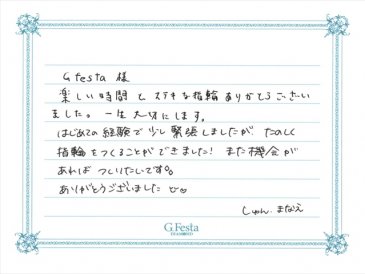 G festa 様
楽しい時間と ステキな指輪ありがとうござい
ました。一生大切にします。
はじめての経験で少し緊張しましたが、たのしく
指輪をつくることができました! また機会が
あれば つくりたいです。
ありがとうございました
しゅん、まなえ
G.Festa
DIAMOND